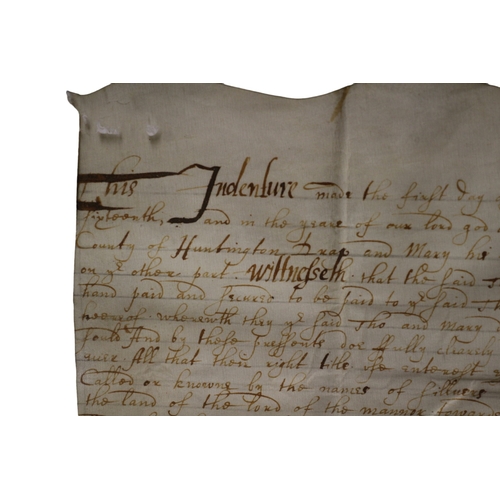 This Indenture made the first day
sixteenth, and in the yeare of our lord god
County of Huntington Drap and Mary his
on ye other part Wittnesseth that the said
hand paid and secured to be paid to ye said
heereof wherewth they ye said Tho and Mary
sould And by these pressents doe fully clearely
euer All that their right title use interest
Called or knowne by the names of
the land of the lord of the manner towards